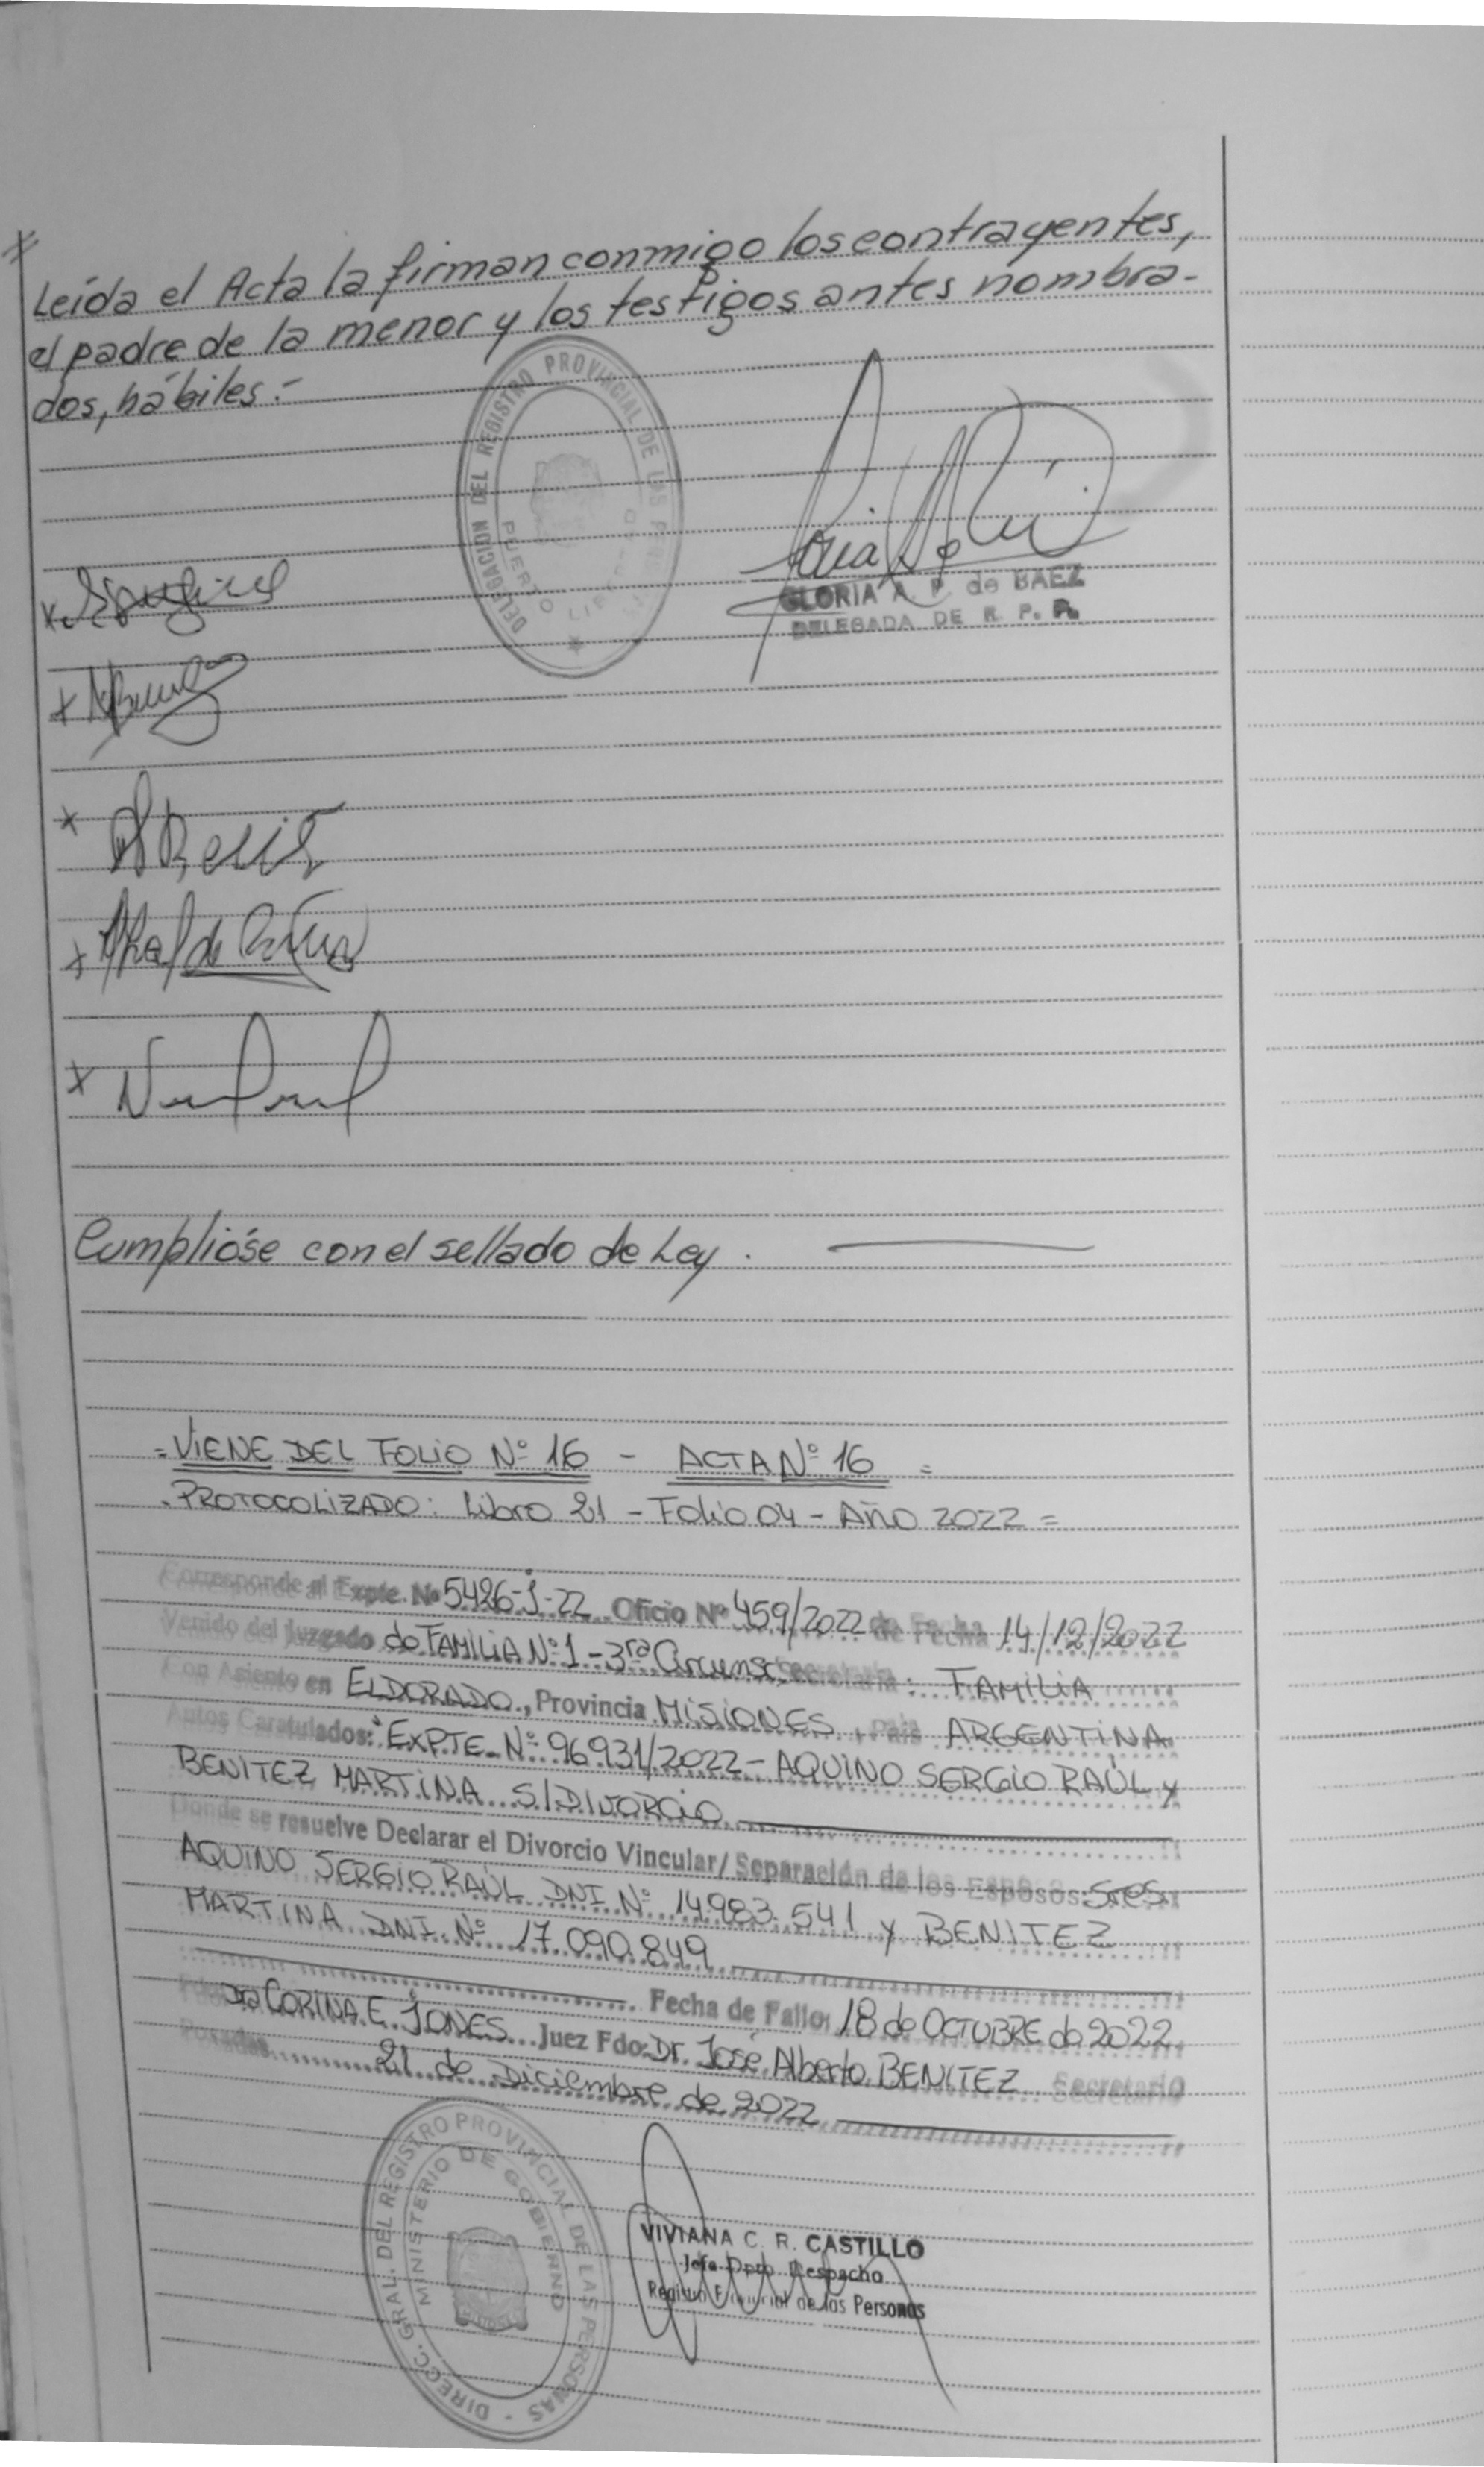 Leída el Acta la firman conmigo los contrayentes,
el padre de la menor y los testigos antes nombra-
dos, hábiles.-
DELEGACION DEL REGISTRO PROVINCIAL DE LAS
PUERTO
GLORIA A. P. de BAEZ
DELEGADA DE R. P. P.
Cumplióse con el sellado de Ley.
=VIENE DEL FOLIO Nº 16 - ACTA Nº 16 =
.PROTOCOLIZADO: Libro 21 - Folio 04 - Año 2022 =
Corresponde al Expte. Nº 5426-J-22 Oficio Nº 459/2022 de Fecha 14/12/2022
Venido del Juzgado de FAMILIA Nº 1 - 3ra Circunsc Secretaría: FAMILIA
Con Asiento en ELDORADO, Provincia MISIONES, País ARGENTINA
Autos Caratulados: "EXPTE. Nº 96931/2022 - AQUINO SERGIO RAÚL y
BENITEZ MARTINA S/DIVORCIO
Donde se resuelve Declarar el Divorcio Vincular/ Separación de los Esposos: Sres.
AQUINO SERGIO RAÚL DNI Nº 14.983.541 y BENITEZ
MARTINA DNI. Nº 17.090.849
Fecha de Fallo: 18 de OCTUBRE de 2022
Dra CORINA E. JONES Juez Fdo: Dr. José Alberto BENITEZ Secretario
Posadas 21 de Diciembre de 2022
DIRECC. GRAL. DEL REGISTRO PROVINCIAL DE LAS PERSONAS -
MINISTERIO DE GOBIERNO
VIVIANA C. R. CASTILLO
Jefa Dpto. Despacho
Registro Provincial de las Personas